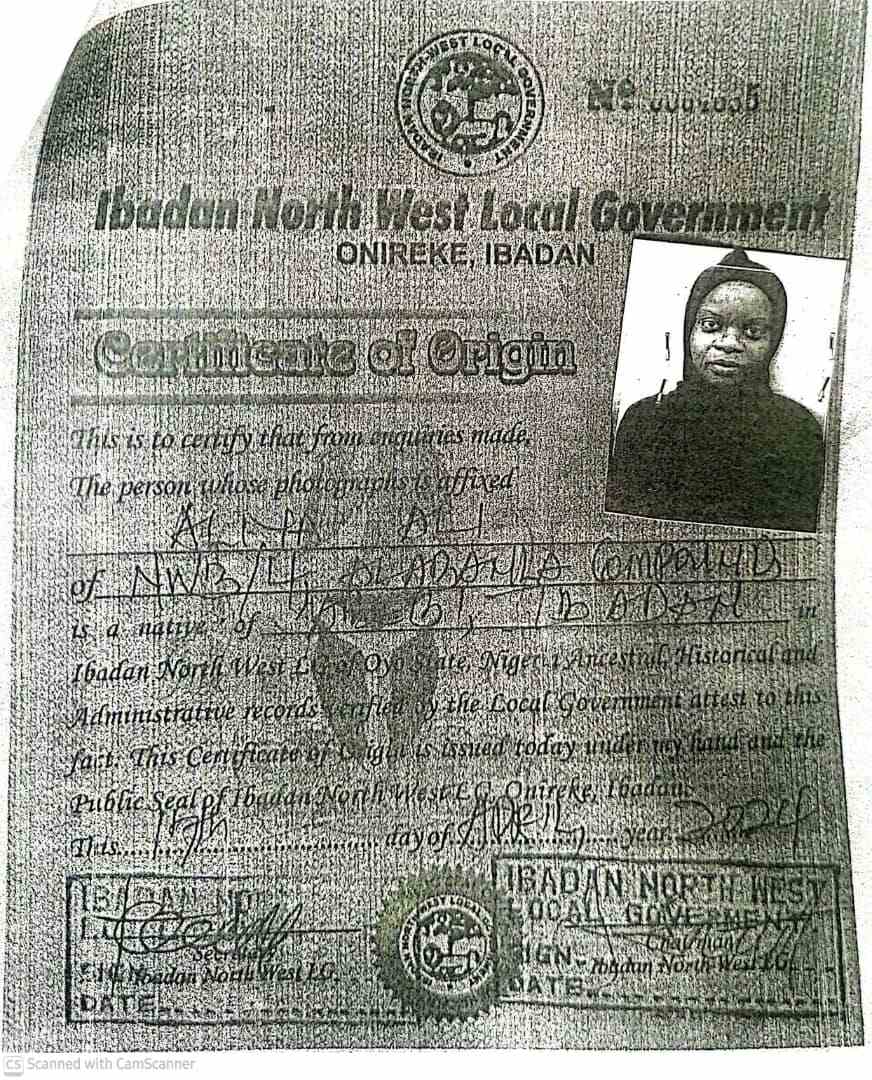 IBADAN NORTH WEST LOCAL GOVERNMENT
Nº
Ibadan North West Local Government
ONIREKE, IBADAN
Certificate of Origin
This is to certify that from enquiries made,
The person whose photographs is affixed
ALI
of NW3/4, ALABANLA COMPOUND
is a native of IBADAN in
Ibadan North West LG of Oyo State, Nigeria Ancestral, Historical and
Administrative records verified by the Local Government attest to this
fact. This Certificate of Origin is issued today under my hand and the
Public Seal of Ibadan North West LG, Onireke, Ibadan.
This day of APRIL year 2024
IBADAN NORTH WEST
LOCAL GOVERMENT
Secretary
Chairman
Ibadan North West LG.
SIGN Ibadan North West LG.
DATE
DATE
CS Scanned with CamScanner